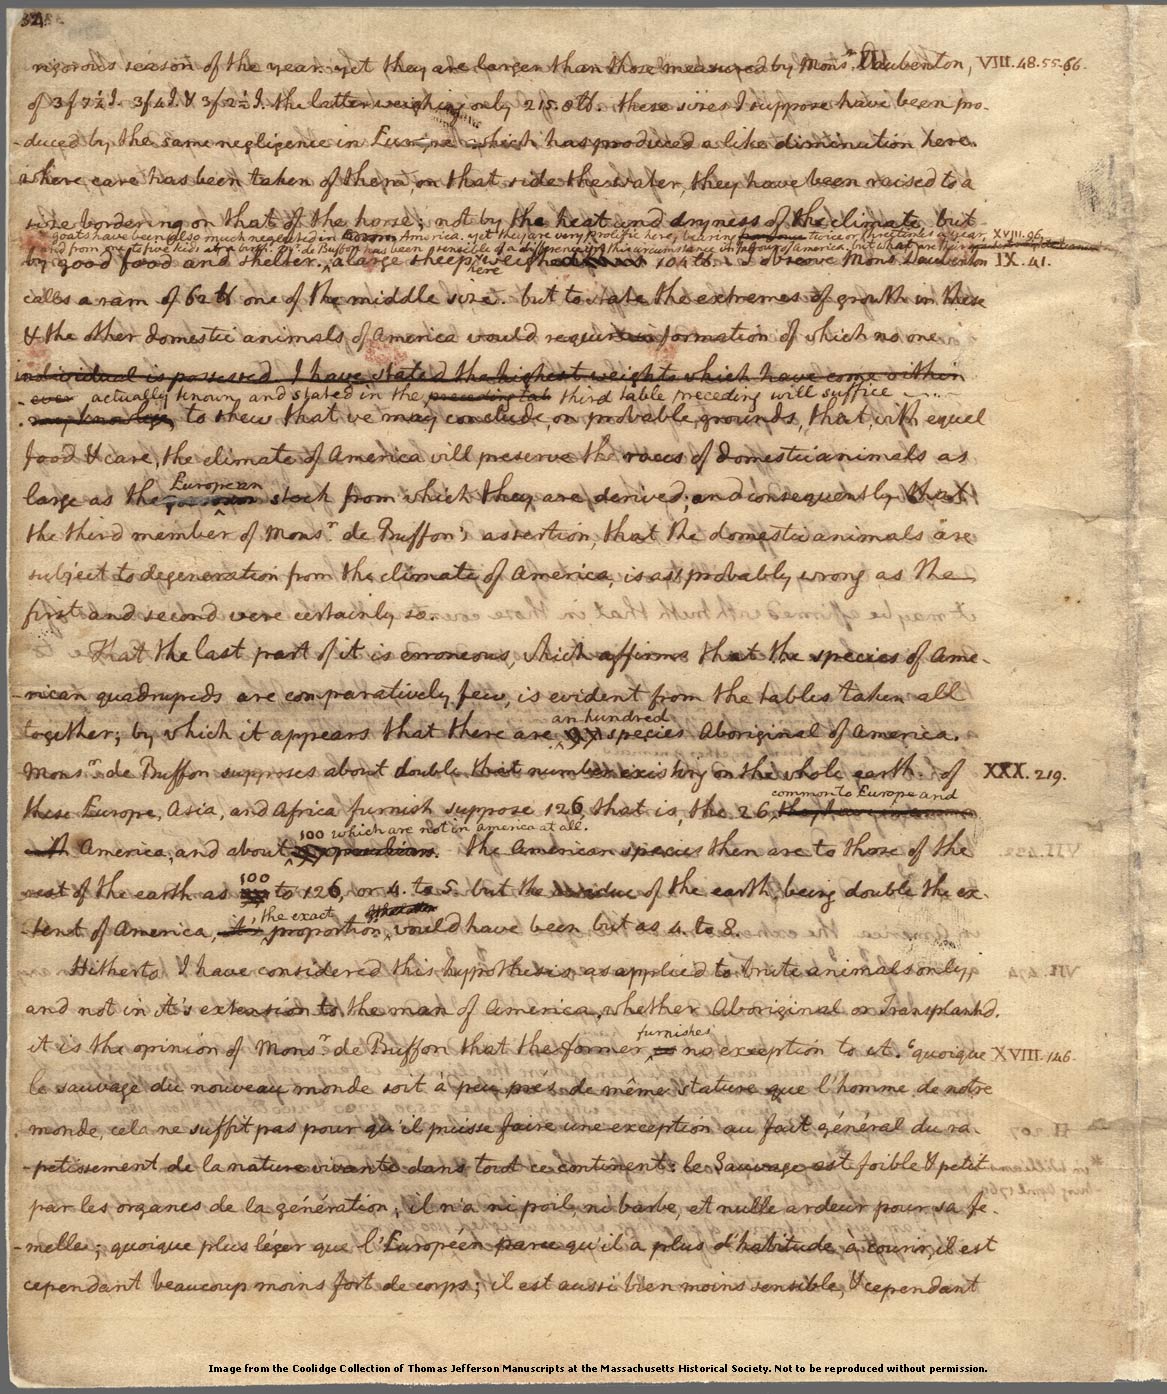 324
rigorous season of the year. yet they are larger than those measured by Mons.r Daubenton, VIII.48.55.66.
of 3f 7¼I. 3f 4I. & 3f 2½I. the latter weighing only 215.8 ℔. these sizes I suppose have been pro-
-duced by the same negligence in Europe which has produced a like diminution here.
where care has been taken of them on that side the water, they have been raised to a
size bordering on that of the horse; not by the heat and dryness of the climate, but
goats have been also much neglected in America. yet they are very prolific here, bearing twice or three times a year, XVIII.96.
and from one to five kids at a birth. Mr. de Buffon has been sensible of a difference in this circumstance in favour of America. but what are their
by good food and shelter. a large sheep here weighed 104 ℔. I observe Mons. Daubenton IX.41.
calls a ram of 62 ℔ one of the middle size. but to state the extremes of growth in these
& the other domestic animals of America would require information of which no one
individual is possessed. I have stated the highest weights which have come within
ever actually known and stated in the preceding tab third table preceding will suffice
my knowledge, to shew that we may conclude, on probable grounds, that, with equal
food & care, the climate of America will preserve the races of domestic animals as
large as the European stock from which they are derived; and consequently that
the third member of Mons.r de Buffon's assertion, that the domestic animals are
subject to degeneration from the climate of America, is as probably wrong as the
first and second were certainly so.
That the last part of it is erroneous, which affirms that the species of Ame-
-rican quadrupeds are comparatively few, is evident from the tables taken all
an hundred
together; by which it appears that there are 97 species Aboriginal of America.
Mons.r de Buffon supposes about double that number existing on the whole earth. of XXX.219.
common to Europe and
these Europe, Asia, and Africa furnish suppose 126, that is, the 26
100 which are not in America at all.
America, and about the American species then are to those of the
100
rest of the earth as to 126, or 4. to 5. but the residue of the earth being double the ex-
the exact
-tent of America, it's proportion would have been but as 4. to 8.
Hitherto I have considered this hypothesis as applied to brute animals only,
and not in it's extension to the man of America, whether Aboriginal or Transplanted.
furnishes
it is the opinion of Mons.r de Buffon that the former no exception to it. "quoique XVIII.146.
le sauvage du nouveau monde soit à peu près de même stature que l'homme de notre
monde, cela ne suffit pas pour qu'il puisse faire une exception au fait général du ra-
-petissement de la nature vivante dans tout ce continent: le Sauvage est foible & petit
par les organes de la génération; il n'a ni poil, ni barbe, et nulle ardeur pour sa fe-
-melle; quoique plus léger que l'Européen parce qu'il a plus d'habitude à courir, il est
cependant beaucoup moins fort de corps; il est aussi bien moins sensible, & cependant
Image from the Coolidge Collection of Thomas Jefferson Manuscripts at the Massachusetts Historical Society. Not to be reproduced without permission.